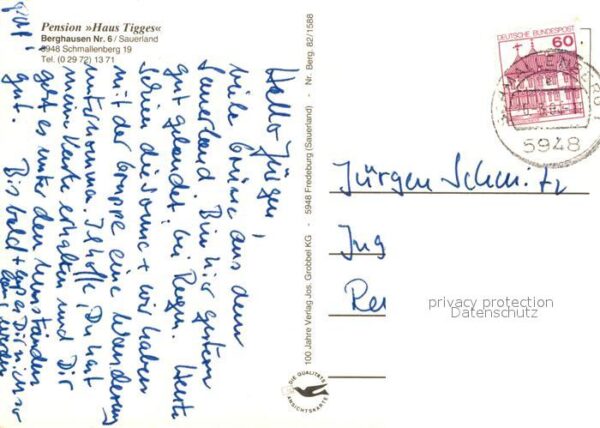 Pension »Haus Tigges«
Berghausen Nr. 6 / Sauerland
5948 Schmallenberg 19
Tel. (0 29 72) 13 71
Hallo Jürgen,
viele Grüße aus dem
Sauerland. Bin hier gestern
gut gelandet, bei Regen. Heute
schien die Sonne + wir haben
mit der Gruppe eine Wanderung
unternommen. Ich hoffe, Du hast
meine Karte erhalten und Dir
geht es unter den Umständen
gut. Bis bald +
100 Jahre Verlag Jos. Grobbel KG - 5948 Fredeburg (Sauerland) - Nr. Berg. 82/1588
DIE QUALITÄTS
ANSICHTSKARTE
DEUTSCHE BUNDESPOST
60
5948
Jürgen Schmitz
Jug
Re
privacy protection
Datenschutz